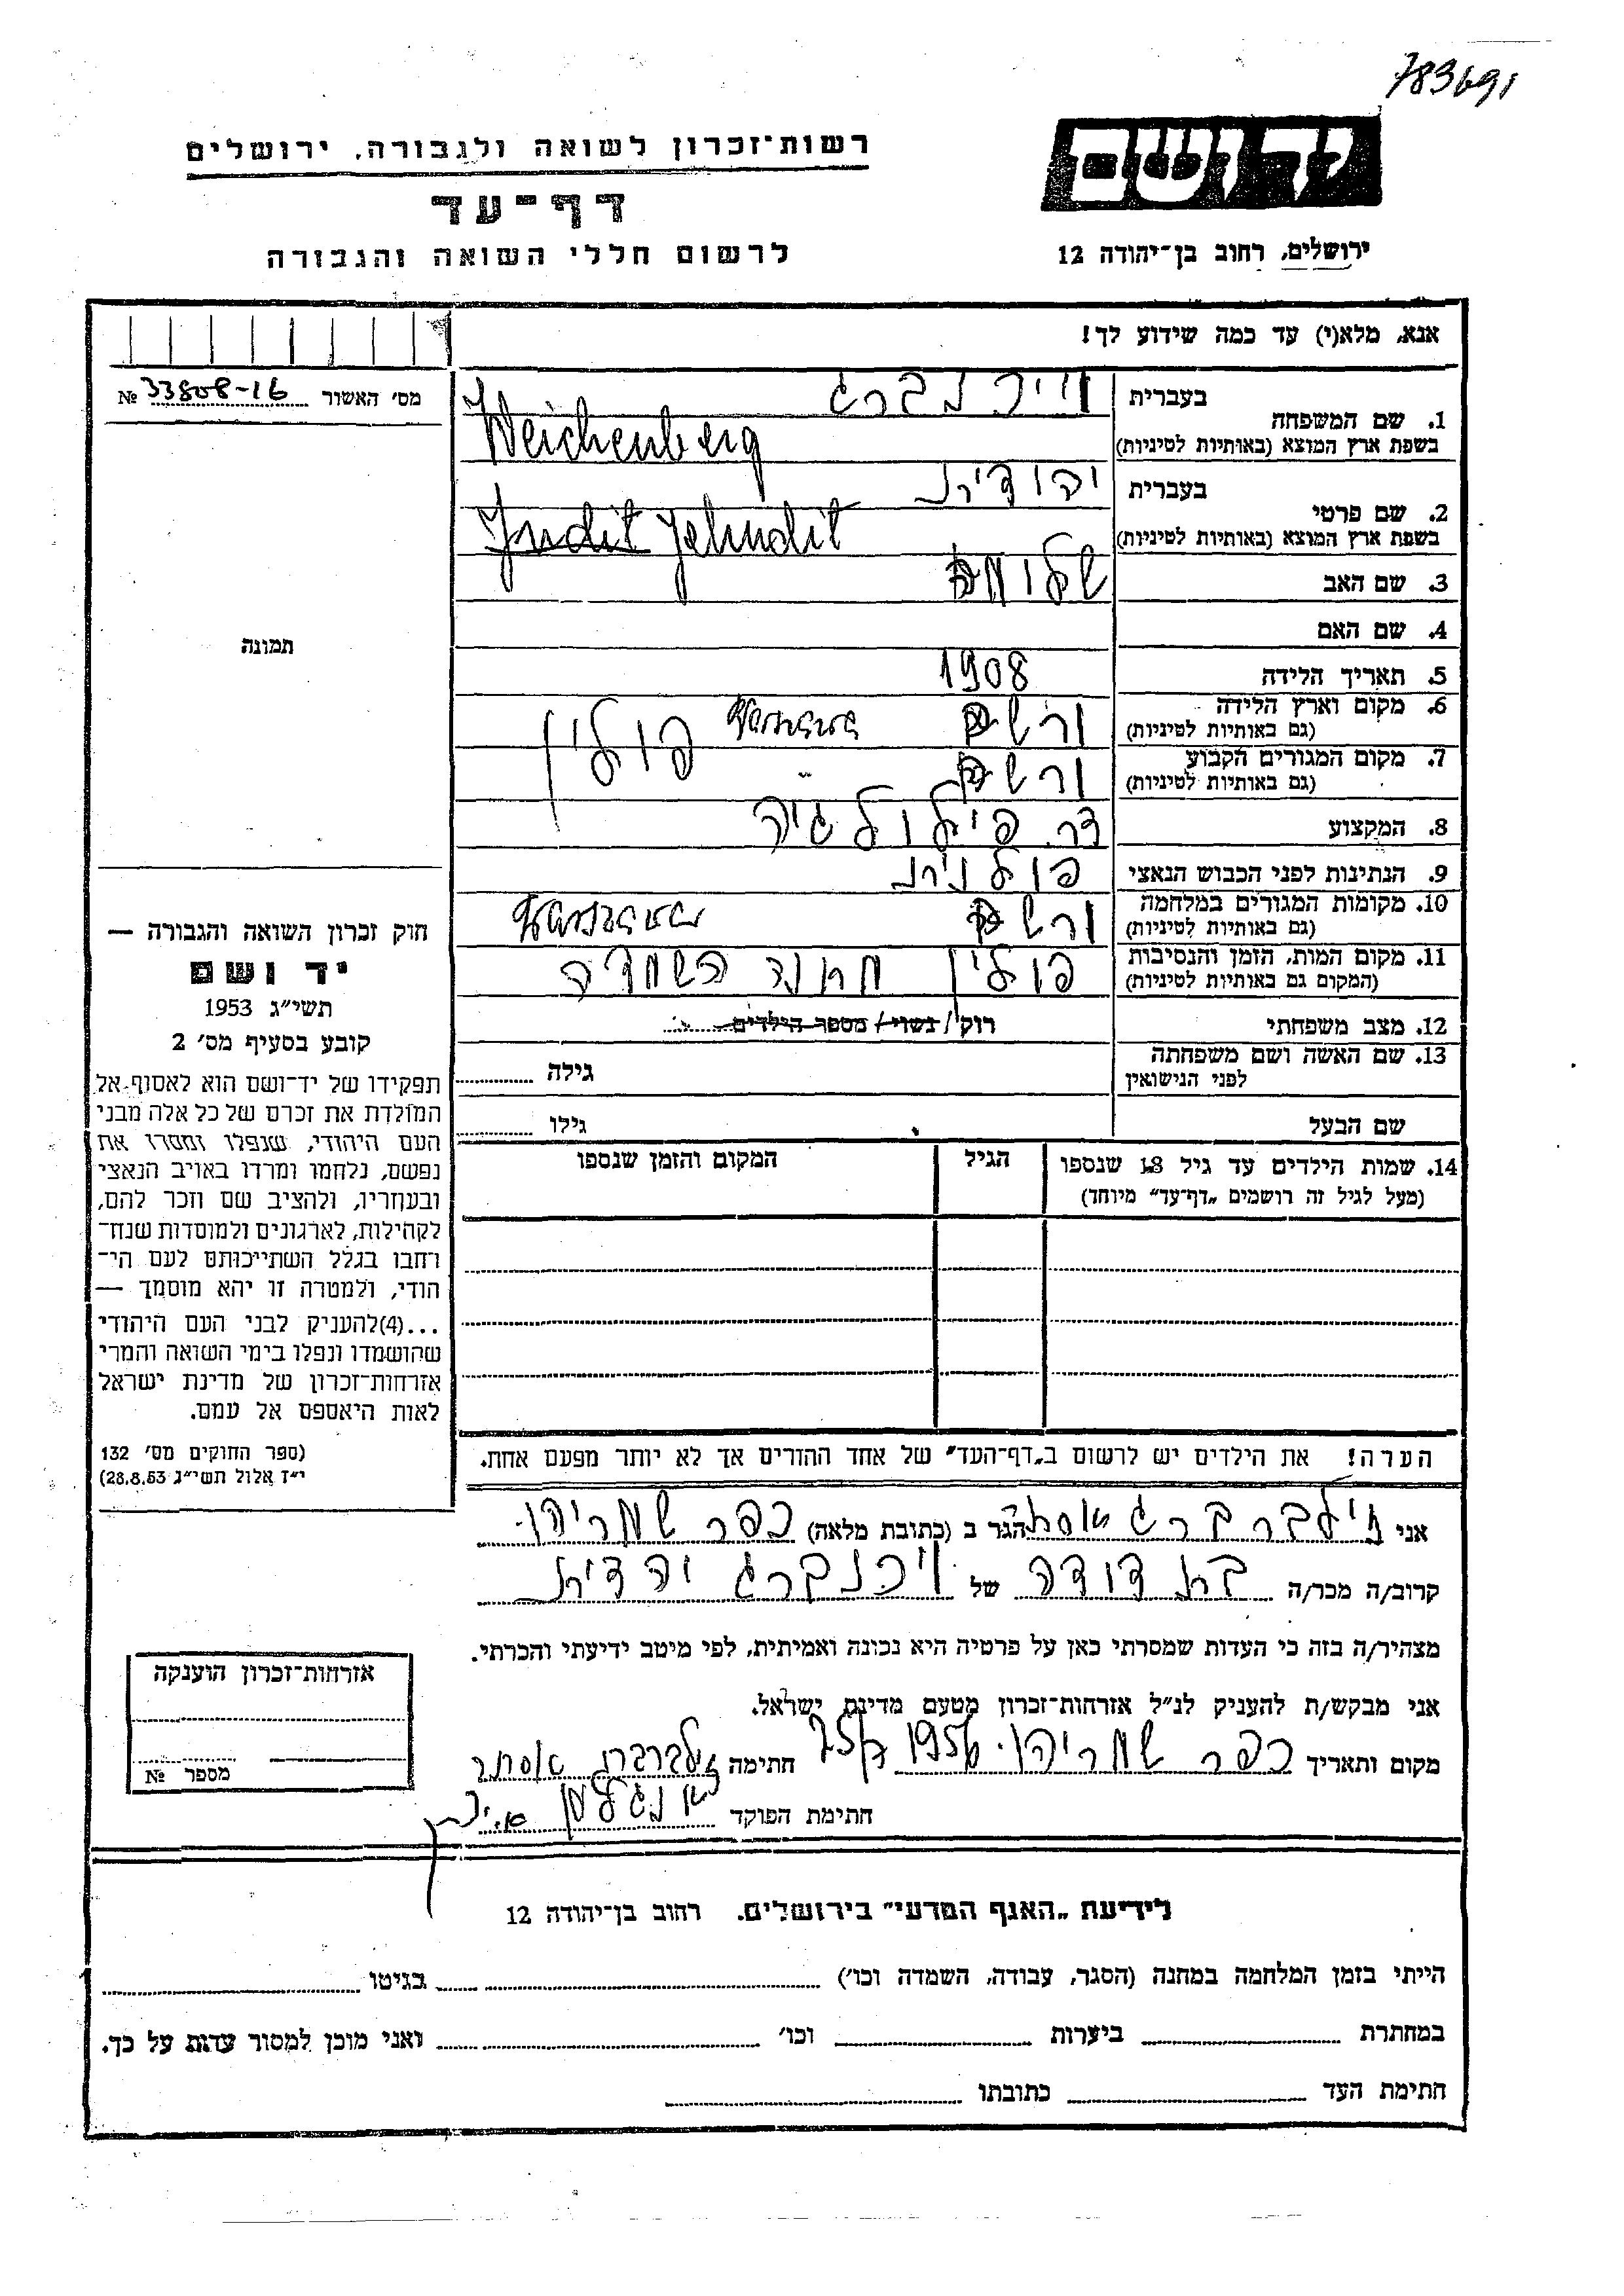 783691
רשות־זכרון לשואה ולגבורה, ירושלים
דף־עד
לרשום חללי השואה והגבורה
יד ושם
ירושלים, רחוב בן־יהודה 12
אנא, מלא(י) עד כמה שידוע לך!
מס׳ האשור 33808-16 №
תמונה
חוק זכרון השואה והגבורה —
יד ושם
תשי״ג 1953
קובע בסעיף מס׳ 2
תפקידו של יד־ושם הוא לאסוף אל
המולדת את זכרם של כל אלה מבני
העם היהודי, שנפלו ומסרו את
נפשם, נלחמו ומרדו באויב הנאצי
ובעוזריו, ולהציב שם וזכר להם,
לקהילות, לארגונים ולמוסדות שנח־
רחבו בגלל השתייכותם לעם הי־
הודי, ולמטרה זו יהא מוסמך —
...(4)להעניק לבני העם היהודי
שהושמדו ונפלו בימי השואה והמרי
אזרחות־זכרון של מדינת ישראל
לאות היאספם אל עמם.
(ספר החוקים מס׳ 132
י״ז אלול תשי״ג 28.8.53)
1. שם המשפחה בעברית וויכנברג
בשפת ארץ המוצא (באותיות לטיניות) Weichenberg
2. שם פרטי בעברית יהודית
בשפת ארץ המוצא (באותיות לטיניות) Judit Jehudit
3. שם האב שלומה
4. שם האם
5. תאריך הלידה 1908
6. מקום וארץ הלידה (גם באותיות לטיניות) ורשה Warszawa פולין
7. מקום המגורים הקבוע (גם באותיות לטיניות) ורשה
8. המקצוע דר. פילולגיה
9. הנתינות לפני הכבוש הנאצי פולנית
10. מקומות המגורים במלחמה (גם באותיות לטיניות) ורשה Warszawa
11. מקום המות, הזמן והנסיבות (המקום גם באותיות לטיניות) פולין מחנה השמדה
12. מצב משפחתי רוק/ נשוי/ מספר הילדים
13. שם האשה ושם משפחתה לפני הנישואין גילה
שם הבעל גילו
14. שמות הילדים עד גיל 18 שנספו הגיל המקום והזמן שנספו
(מעל לגיל זה רושמים „דף־עד״ מיוחד)
הערה! את הילדים יש לרשום ב„דף־העד״ של אחד ההורים אך לא יותר מפעם אחת.
אני זילברברג אסתר הגר ב (כתובת מלאה) כפר שמריהו.
קרוב/ה מכר/ה בת דודה של ויכנברג יהדית
מצהיר/ה בזה כי העדות שמסרתי כאן על פרטיה היא נכונה ואמיתית, לפי מיטב ידיעתי והכרתי.
אני מבקש/ת להעניק לנ״ל אזרחות־זכרון מטעם מדינת ישראל.
מקום ותאריך כפר שמריהו. 1956 חתימה זילברברג אסתר
חתימת הפוקד
אזרחות־זכרון הוענקה
מספר №
לידיעת „האגף המדעי״ בירושלים, רחוב בן־יהודה 12
הייתי בזמן המלחמה במחנה (הסגר, עבודה, השמדה וכו׳) בגיטו
במחתרת ביערות וכו׳ ואני מוכן למסור עדות על כך.
חתימת העד כתובתו